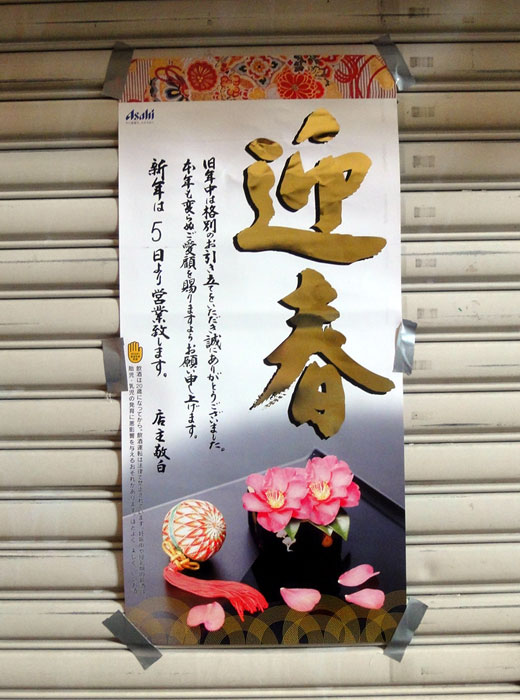 迎春
旧年中は格別のお引き立てをいただき誠にありがとうございました。
本年も変らぬご愛顧を賜りますようお願い申し上げます。
新年は5日より営業致します。
店主敬白
Asahi
飲酒は20歳になってから。飲酒運転は法律で禁止されています。
胎児・乳児の発育に悪影響を与えるおそれがあります。